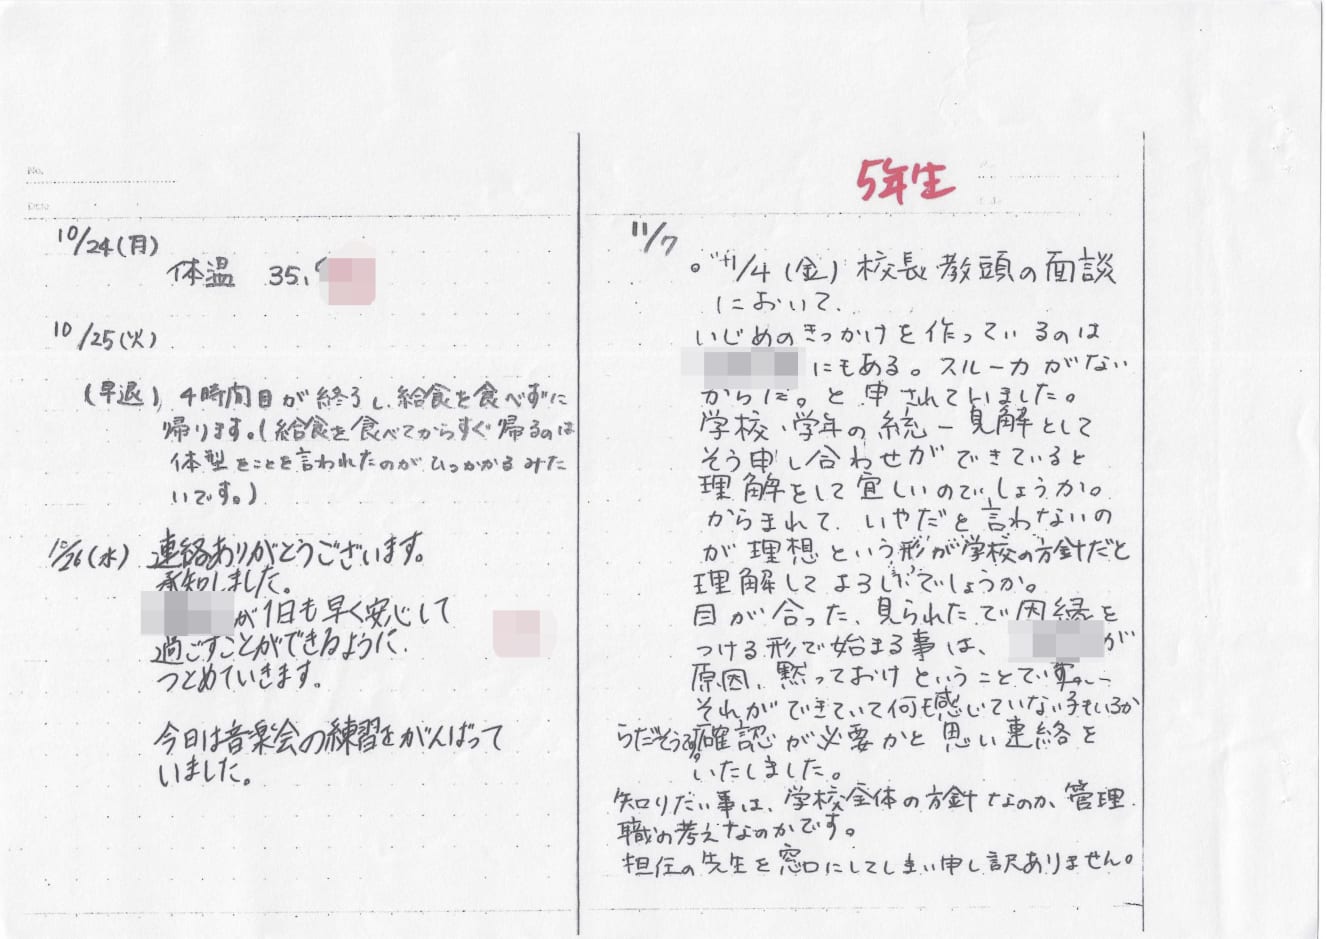 No.
Date
10/24(月)
体温 35.
10/25(火)
(早退) 4時間目が終了し、給食を食べずに
帰ります。(給食を食べてからすぐ帰るのは
体型をことを言われたのがひっかかるみた
いです。)
10/26(水) 連絡ありがとうございます。
承知しました。
が1日も早く安心して
過ごすことができるように
つとめていきます。
今日は音楽会の練習をがんばって
いました。
5年生
11/7
11/4(金)校長教頭の面談
において、
いじめのきっかけを作っているのは
にもある。スルー力がない
からだ。と申されていました。
学校、学年の統一見解として
そう申し合わせができていると
理解をして宜しいのでしょうか。
からまれて、いやだと言わないの
が理想という形が学校の方針だと
理解してよろしいでしょうか。
目が合った、見られたで因縁を
つける形で始まる事は、 が
原因、黙っておけということで
それができていて何も感じていない子もいるか
らだそうです。確認が必要かと思い連絡を
いたしました。
知りたい事は、学校全体の方針なのか、管理
職の考えなのかです。
担任の先生を窓口にしてしまい申し訳ありません。